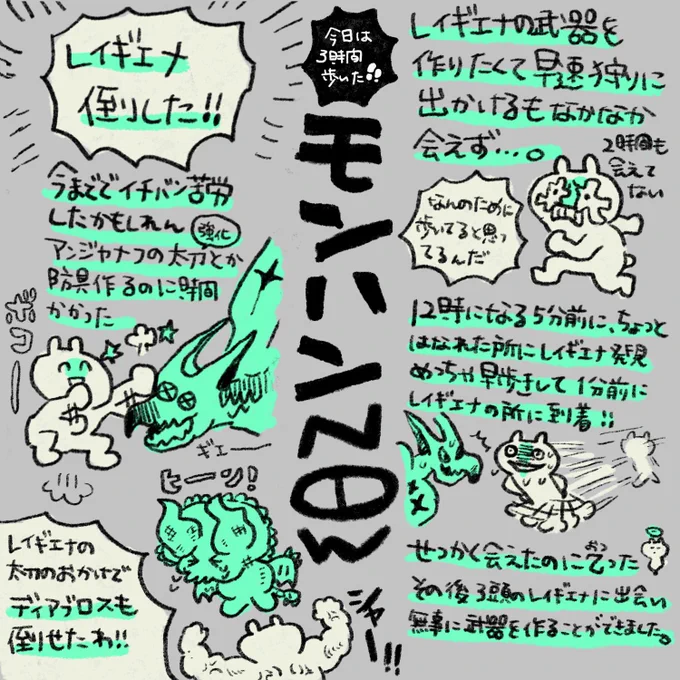 今日は
3時間
歩いた!!
モンハンNOW
レイギエナの武器を
作りたくて早速狩りに
出かけるもなかなか
会えず…。
2時間も
会えて
ない
なんのために
歩いてると思っ
てるんだ
12時になる5分前に、ちょっと
はなれた所にレイギエナ発見
めっちゃ早歩きして1分前に
レイギエナの所に到着!!
せっかく会えたのに乙った
おつ
その後3頭のレイギエナに出会い
無事に武器を作ることができました。
レイギエナ
倒りした!!
今までで イチバン苦労
したかもしれん
強化
アンジャナフの太刀とか
防具作るのに時間
かかった
ボコー
ギエー
ヒーン!
レイギエナの
太刀のおかげで
ディアブロスも
倒せたわ!!
シャー!!